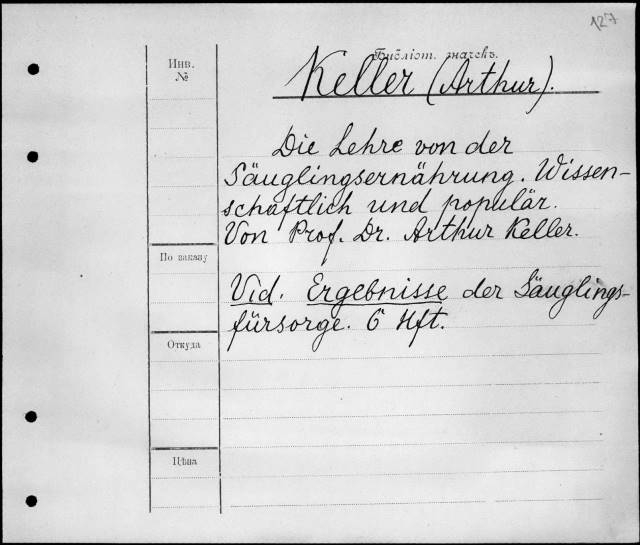 127
Библіот. значекъ.
Инв.
№
Keller (Arthur).
Die Lehre von der
Säuglingsernährung. Wissen-
schaftlich und populär.
Von Prof. Dr. Arthur Keller.
По заказу
Vid. Ergebnisse der Säuglings-
fürsorge. 6 Hft.
Откуда
Цѣна